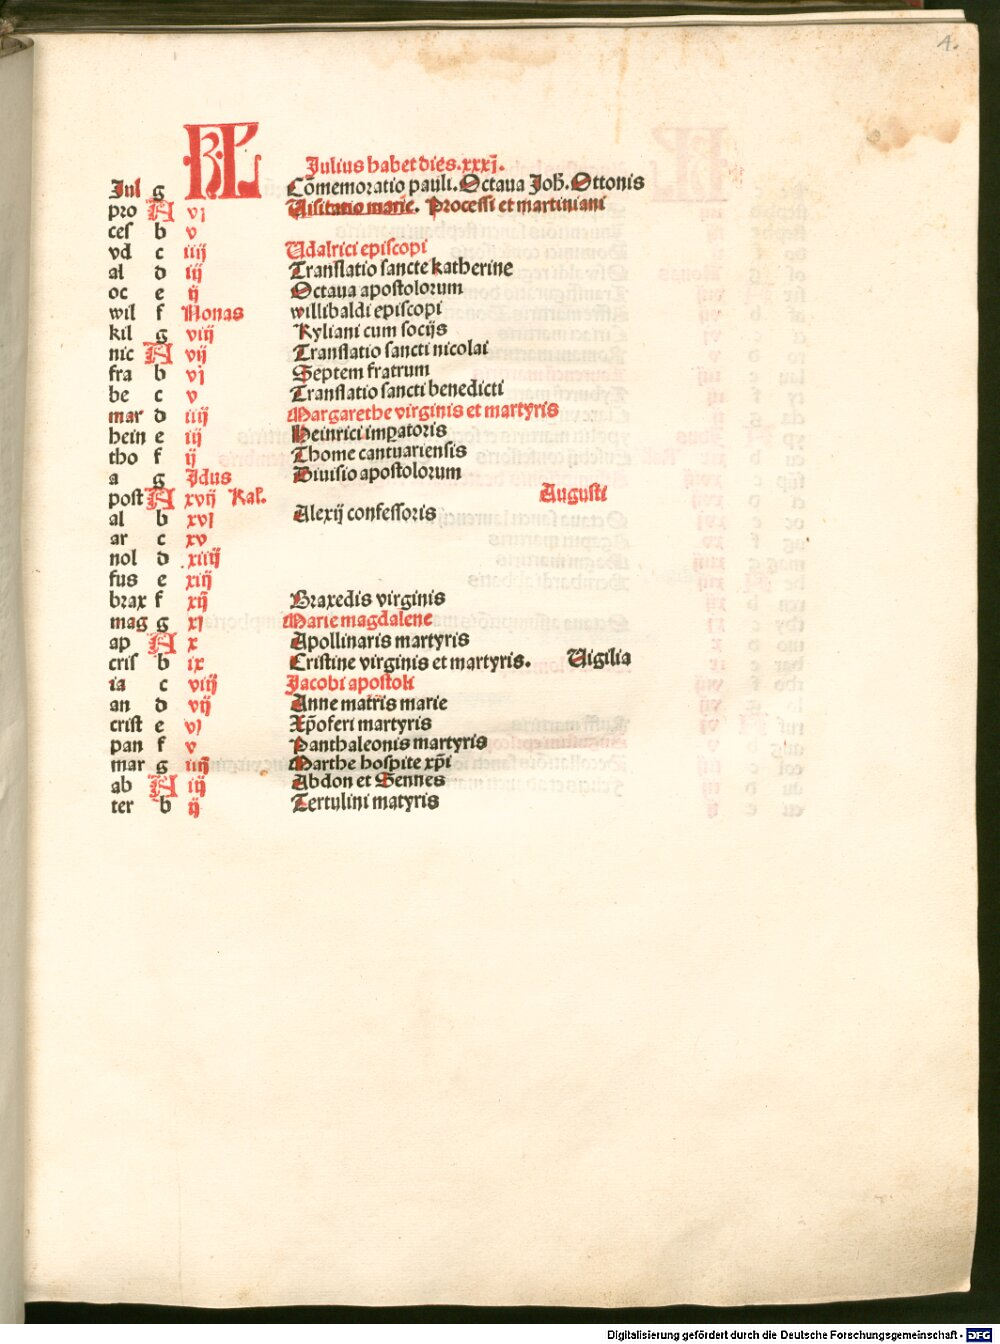 4.
KL Julius habet dies.xxxj̄.
Jul g Cōmemoratio pauli. Octaua Joh̄. Ottonis
pro A vj Uisitatio marie. Processi et martiniani
ces b v
vd c iiij Udalrici episcopi
al d iij Translatio sancte katherine
oc e ij Octaua apostolorum
wil f Nonas willibaldi episcopi
kil g viij Kyliani cum socijs
nic A vij Translatio sancti nicolai
fra b vj Septem fratrum
be c v Translatio sancti benedicti
mar d iiij Margarethe virginis et martyris
hein e iij Heinrici imꝑatoris
tho f ij Thome cantuariensis
a g Jdus Diuisio apostolorum
post A xvij Kal'. Augusti
al b xvj Alexij confessoris
ar c xv
nol d xiiij
fus e xiij
brax f xij Braxedis virginis
mag g xj Marie magdalene
ap A x Apollinaris martyris
cris b ix Cristine virginis et martyris. Uigilia
ia c viij Jacobi apostoli
an d vij Anne matris marie
crist e vj Xp̄oferi martyris
pan f v Panthaleonis martyris
mar g iiij Marthe hospite xp̄i
ab A iij Abdon et Sennes
ter b ij Tertulini matyris
Digitalisierung gefördert durch die Deutsche Forschungsgemeinschaft - DFG